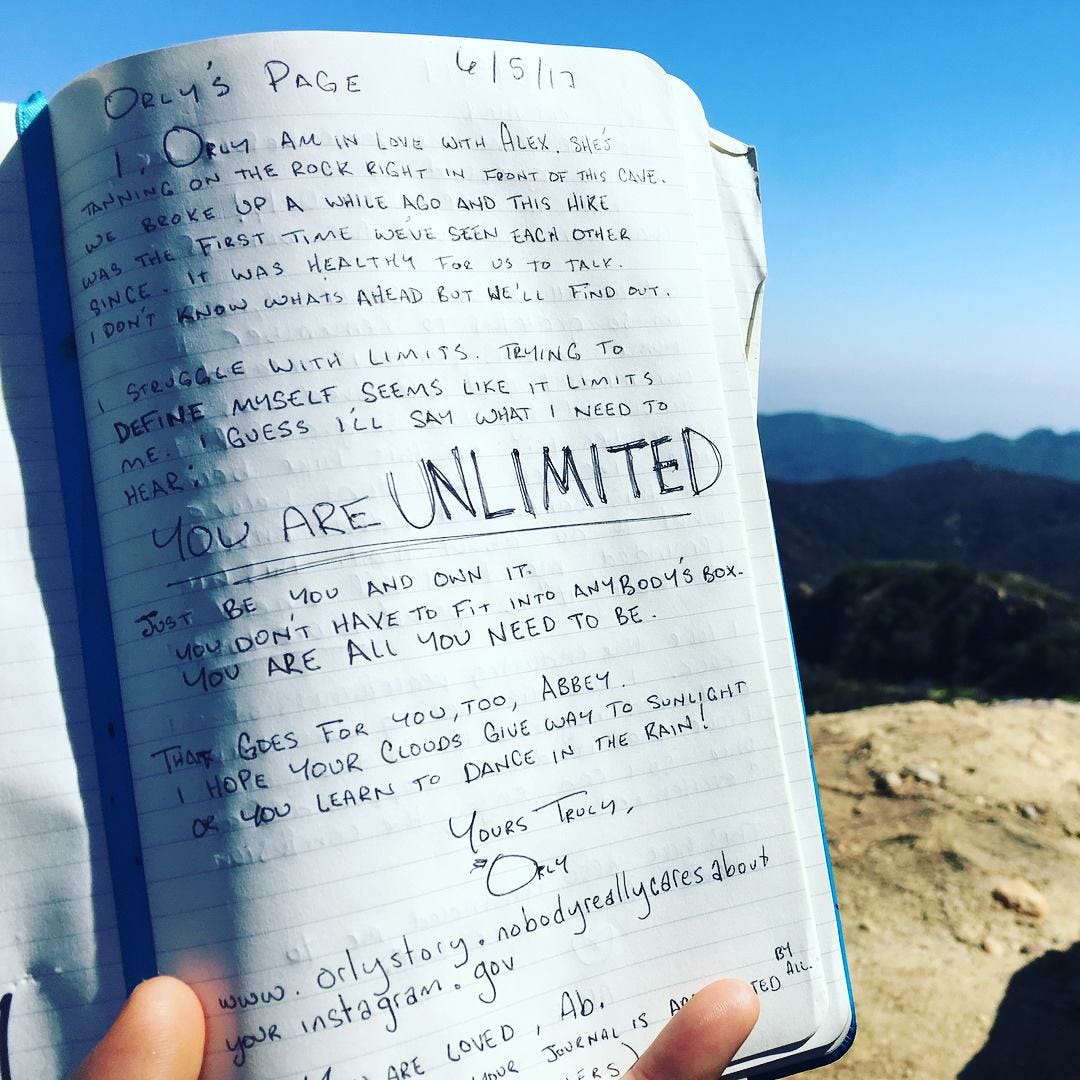 ORLY'S PAGE 6/5/17
I, ORLY AM IN LOVE WITH ALEX. SHE'S
TANNING ON THE ROCK RIGHT IN FRONT OF THIS CAVE.
WE BROKE UP A WHILE AGO AND THIS HIKE
WAS THE FIRST TIME WE'VE SEEN EACH OTHER
SINCE. IT WAS HEALTHY FOR US TO TALK.
I DON'T KNOW WHATS AHEAD BUT WE'LL FIND OUT.
I STRUGGLE WITH LIMITS. TRYING TO
DEFINE MYSELF SEEMS LIKE IT LIMITS
ME. I GUESS I'LL SAY WHAT I NEED TO
HEAR:
YOU ARE UNLIMITED
JUST BE YOU AND OWN IT.
YOU DON'T HAVE TO FIT INTO ANYBODY'S BOX.
YOU ARE ALL YOU NEED TO BE.
THAT GOES FOR YOU, TOO, ABBEY.
I HOPE YOUR CLOUDS GIVE WAY TO SUNLIGHT
OR YOU LEARN TO DANCE IN THE RAIN!
YOURS TRULY,
ORLY
www.orlystory.nobodyreallycaresabout
yourinstagram.gov
ARE LOVED, AB.
YOUR JOURNAL IS BY ALL.